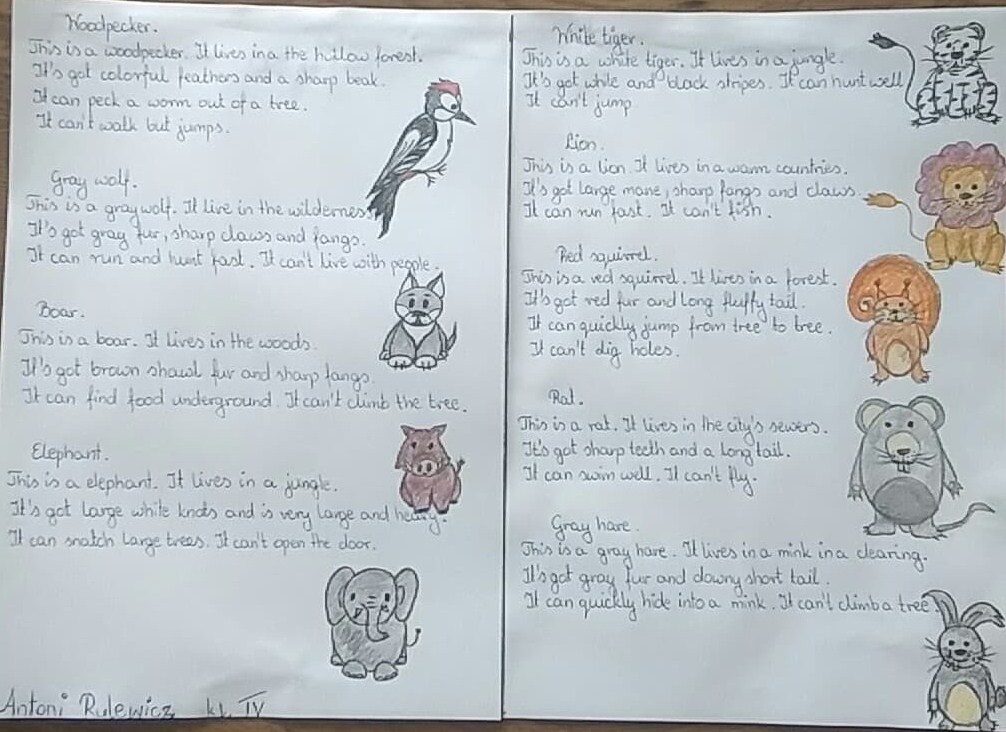 Woodpecker.
This is a woodpecker. It lives in a the hillow forest.
It's got colorful feathers and a sharp beak.
It can peck a worm out of a tree.
It can't walk but jumps.
Gray wolf.
This is a gray wolf. It live in the wilderness.
It's got gray fur, sharp claws and fangs.
It can run and hunt fast. It can't live with people.
Boar.
This is a boar. It lives in the woods.
It's got brown shawl fur and sharp fangs.
It can find food underground. It can't climb the tree.
Elephant.
This is a elephant. It lives in a jungle.
It's got large white knots and is very large and heavy.
It can snatch large trees. It can't open the door.
Antoni Rulewicz kl. IV
White tiger.
This is a white tiger. It lives in a jungle.
It's got white and black stripes. It can hunt well
It can't jump
Lion.
This is a lion. It lives in a warm countries.
It's got large mane, sharp fangs and claws.
It can run fast. It can't fish.
Red squirrel.
This is a red squirrel. It lives in a forest.
It's got red fur and long fluffy tail.
It can quickly jump from tree to tree.
It can't dig holes.
Rat.
This is a rat. It lives in the city's sewers.
It's got sharp teeth and a long tail.
It can swim well. It can't fly.
Gray hare.
This is a gray hare. It lives in a mink in a clearing.
It's got gray fur and downy short tail.
It can quickly hide into a mink. It can't climb a tree.